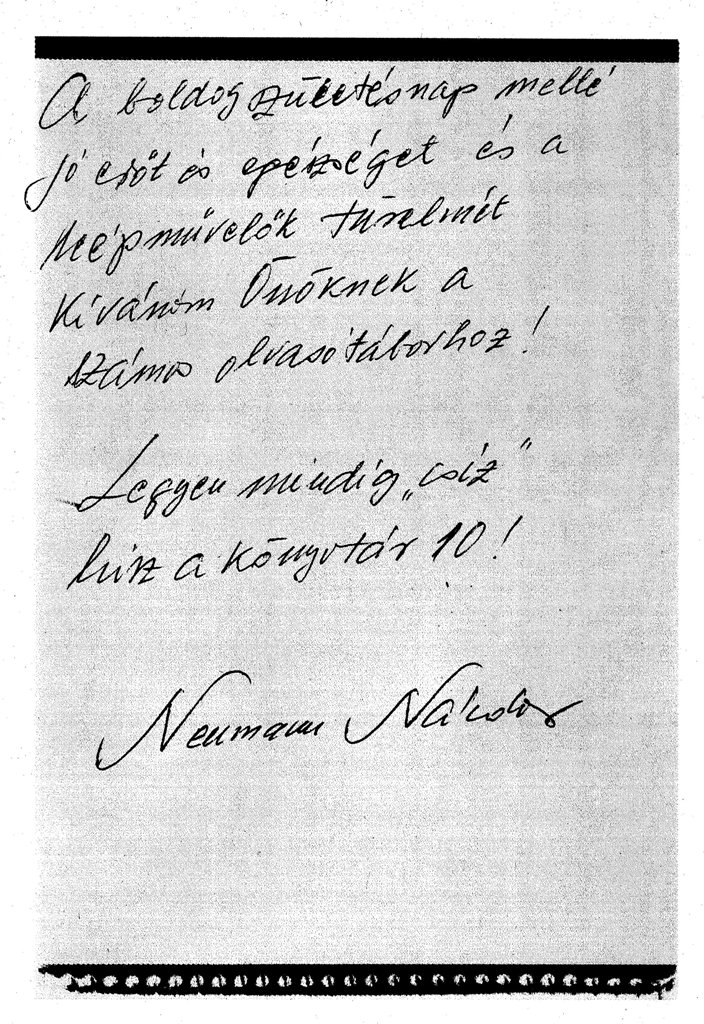 A boldog születésnap mellé
jó erőt és egészséget és a
népművelők türelmét
Kívánom Önöknek a
számos olvasótáborhoz!
Legyen mindig „csíz”
húsz a könyvtár 10!
Neumann Nándor